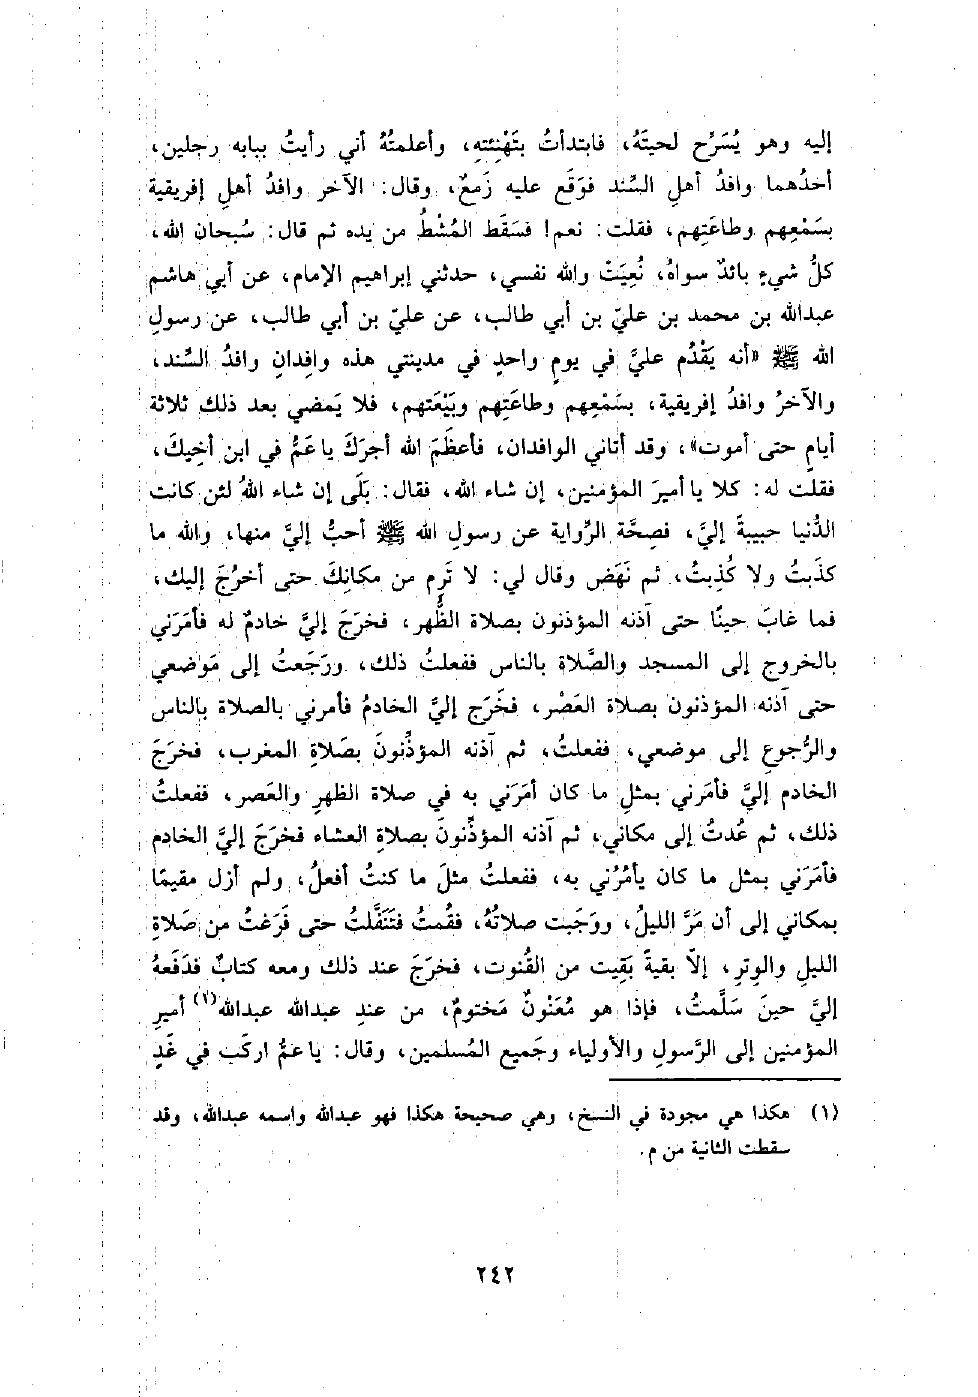 إليه وهو يُسَرِّح لحيتَهُ، فابتدأتُ بتَهْنِئتِهِ، وأعلمتُهُ أني رأيتُ ببابه رجلين،
أحدُهما وافدُ أهلِ السِّند فوَقَع عليه زَمعٌ، وقال: الآخر وافدُ أهلِ إفريقية
بسَمْعِهم وطاعَتِهم، فقلت: نعم! فسَقَط المُشْطُ من يده ثم قال: سُبحان الله،
كلُّ شيءٍ بائدٌ سواهُ، نُعِيَتْ والله نفسي، حدثني إبراهيم الإمام، عن أبي هاشم
عبدالله بن محمد بن عليّ بن أبي طالب، عن عليّ بن أبي طالب، عن رسولِ
الله ﷺ «أنه يَقْدُم عليَّ في يومٍ واحدٍ في مدينتي هذه وافِدانِ وافدُ السِّند،
والآخرُ وافدُ إفريقية، بسَمْعِهم وطاعَتِهم وبَيْعَتهم، فلا يَمضي بعد ذلك ثلاثة
أيامٍ حتى أموت»، وقد أتاني الوافدان، فأعظَمَ الله أجرَكَ يا عَمُّ في ابن أخِيكَ،
فقلت له: كلا يا أميرَ المؤمنين، إن شاء الله، فقال: بَلَى إن شاء اللهُ لئن كانت
الدُّنيا حبيبةً إليَّ، فصِحَّة الرِّواية عن رسولِ الله ﷺ أحبُّ إليَّ منها، والله ما
كذَبتُ ولا كُذِبتُ، ثم نَهَض وقال لي: لا تَرِم من مكانِكَ حتى أخرُجَ إليك،
فما غابَ حينًا حتى آذنه المؤذنون بصلاة الظُّهر، فخَرَجَ إليَّ خادمٌ له فأمَرَني
بالخروج إلى المسجد والصَّلاة بالناس ففعلتُ ذلك، ورَجَعتُ إلى مَوضعي
حتى آذنه المؤذنون بصلاة العَصْر، فخَرَج إليَّ الخادمُ فأمرني بالصلاة بالناس
والرُّجوعِ إلى موضعي، ففعلتُ، ثم آذنه المؤذِّنونَ بصَلاةِ المغرب، فخرَجَ
الخادم إليَّ فأمَرني بمثلِ ما كان أمَرَني به في صلاة الظهرِ والعَصر، ففعلتُ
ذلك، ثم عُدتُ إلى مكاني، ثم آذنه المؤذِّنونَ بصلاةِ العشاء فخرَجَ إليَّ الخادم
فأمَرَني بمثل ما كان يأمُرُني به، ففعلتُ مثلَ ما كنتُ أفعلُ، ولم أزل مقيمًا
بمكاني إلى أن مَرَّ الليلُ، ووَجَبت صلاتُهُ، فقُمتُ فتَنَفَّلتُ حتى فَرَغتُ من صَلاةِ
الليلِ والوِترِ، إلّا بقيةً بَقِيت من القُنوت، فخرَجَ عند ذلك ومعه كتابٌ فدَفَعهُ
إليَّ حينَ سَلَّمتُ، فإذا هو مُعَنْونٌ مَختومٌ، من عندِ عبدالله عبدالله(١) أميرِ
المؤمنين إلى الرَّسولِ والأولياء وجَميعِ المُسلمين، وقال: يا عمُّ اركَب في غَدٍ
(١) هكذا هي مجودة في النسخ، وهي صحيحة هكذا فهو عبدالله واسمه عبدالله، وقد
سقطت الثانية من م.
٢٤٢